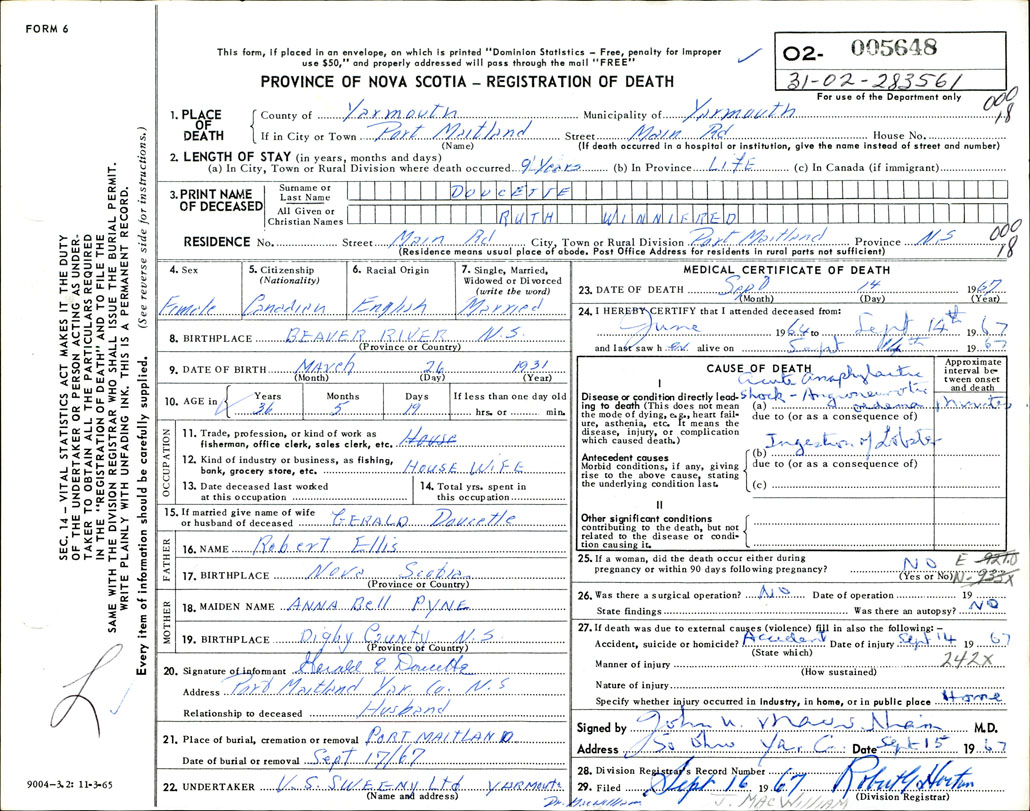 FORM 6
This form, if placed in an envelope, on which is printed "Dominion Statistics – Free, penalty for improper
use $50," and properly addressed will pass through the mail "FREE"
PROVINCE OF NOVA SCOTIA – REGISTRATION OF DEATH
02- 005648
31-02-283561
For use of the Department only
000
18
1. PLACE OF DEATH
County of Yarmouth Municipality of Yarmouth
If in City or Town Port Maitland Street Main Rd House No.
(Name) (If death occurred in a hospital or institution, give the name instead of street and number)
2. LENGTH OF STAY (in years, months and days)
(a) In City, Town or Rural Division where death occurred 9 Years (b) In Province LIFE (c) In Canada (if immigrant)
3. PRINT NAME OF DECEASED
Surname or Last Name DOUCETTE
All Given or Christian Names RUTH WINNIFRED
RESIDENCE No. Street Main Rd City, Town or Rural Division Port Maitland Province N.S
000
18
(Residence means usual place of abode. Post Office Address for residents in rural parts not sufficient)
4. Sex
Female
5. Citizenship
(Nationality)
Canadian
6. Racial Origin
English
7. Single, Married,
Widowed or Divorced
(write the word)
Married
8. BIRTHPLACE BEAVER RIVER N.S.
(Province or Country)
9. DATE OF BIRTH March 26 1931
(Month) (Day) (Year)
10. AGE in
Years Months Days If less than one day old
36 5 19 hrs. or min.
OCCUPATION
11. Trade, profession, or kind of work as
fisherman, office clerk, sales clerk, etc. House
12. Kind of industry or business, as fishing,
bank, grocery store, etc. HOUSE WIFE
13. Date deceased last worked
at this occupation
14. Total yrs. spent in
this occupation
15. If married give name of wife
or husband of deceased GERALD Doucette
FATHER
16. NAME Robert Ellis
17. BIRTHPLACE Nova Scotia
(Province or Country)
MOTHER
18. MAIDEN NAME ANNA Bell PYNE
19. BIRTHPLACE Digby County N.S
(Province or Country)
20. Signature of informant Gerald E Doucette
Address Port Maitland Yar. Co. N.S
Relationship to deceased Husband
21. Place of burial, cremation or removal PORT MAITLAND
Date of burial or removal Sept 17/67
22. UNDERTAKER V.S. SWEENY Ltd YARMOUTH
(Name and address)
MEDICAL CERTIFICATE OF DEATH
23. DATE OF DEATH Sept 14 1967
(Month) (Day) (Year)
24. I HEREBY CERTIFY that I attended deceased from:
June 1964 to Sept 14th 1967
and last saw her alive on Sept 14th 1967
CAUSE OF DEATH
Approximate interval between onset and death
I
Disease or condition directly leading to death (This does not mean the mode of dying, e.g., heart failure, asthenia, etc. It means the disease, injury, or complication which caused death.)
acute anaphylactic
shock - Angioneurotic
(a) oedema minutes
due to (or as a consequence of)
Ingestion of Lobster
Antecedent causes
Morbid conditions, if any, giving rise to the above cause, stating the underlying condition last.
(b)
due to (or as a consequence of)
(c)
II
Other significant conditions
contributing to the death, but not related to the disease or condition causing it.
25. If a woman, did the death occur either during
pregnancy or within 90 days following pregnancy? NO
(Yes or No)
E
N-933X
26. Was there a surgical operation? NO Date of operation 19
State findings Was there an autopsy? NO
27. If death was due to external causes (violence) fill in also the following:–
Accident, suicide or homicide? Accident Date of injury Sept 14 1967
(State which)
242X
Manner of injury
(How sustained)
Nature of injury
Specify whether injury occurred in Industry, in home, or in public place Home
Signed by M.D.
Address Date Sept 15 1967
28. Division Registrar's Record Number
29. Filed Sept 16 1967 Robert G Horton
(Division Registrar)
Dr. MacWilliam
J. MACWILLIAM
SEC. 14 – VITAL STATISTICS ACT MAKES IT THE DUTY
OF THE UNDERTAKER OR PERSON ACTING AS UNDER-
TAKER TO OBTAIN ALL THE PARTICULARS REQUIRED
IN THE "REGISTRATION OF DEATH" AND TO FILE THE
SAME WITH THE DIVISION REGISTRAR WHO SHALL ISSUE THE BURIAL PERMIT.
WRITE PLAINLY WITH UNFADING INK. THIS IS A PERMANENT RECORD.
Every item of information should be carefully supplied. (See reverse side for instructions.)
9004-3.2: 11-3-65